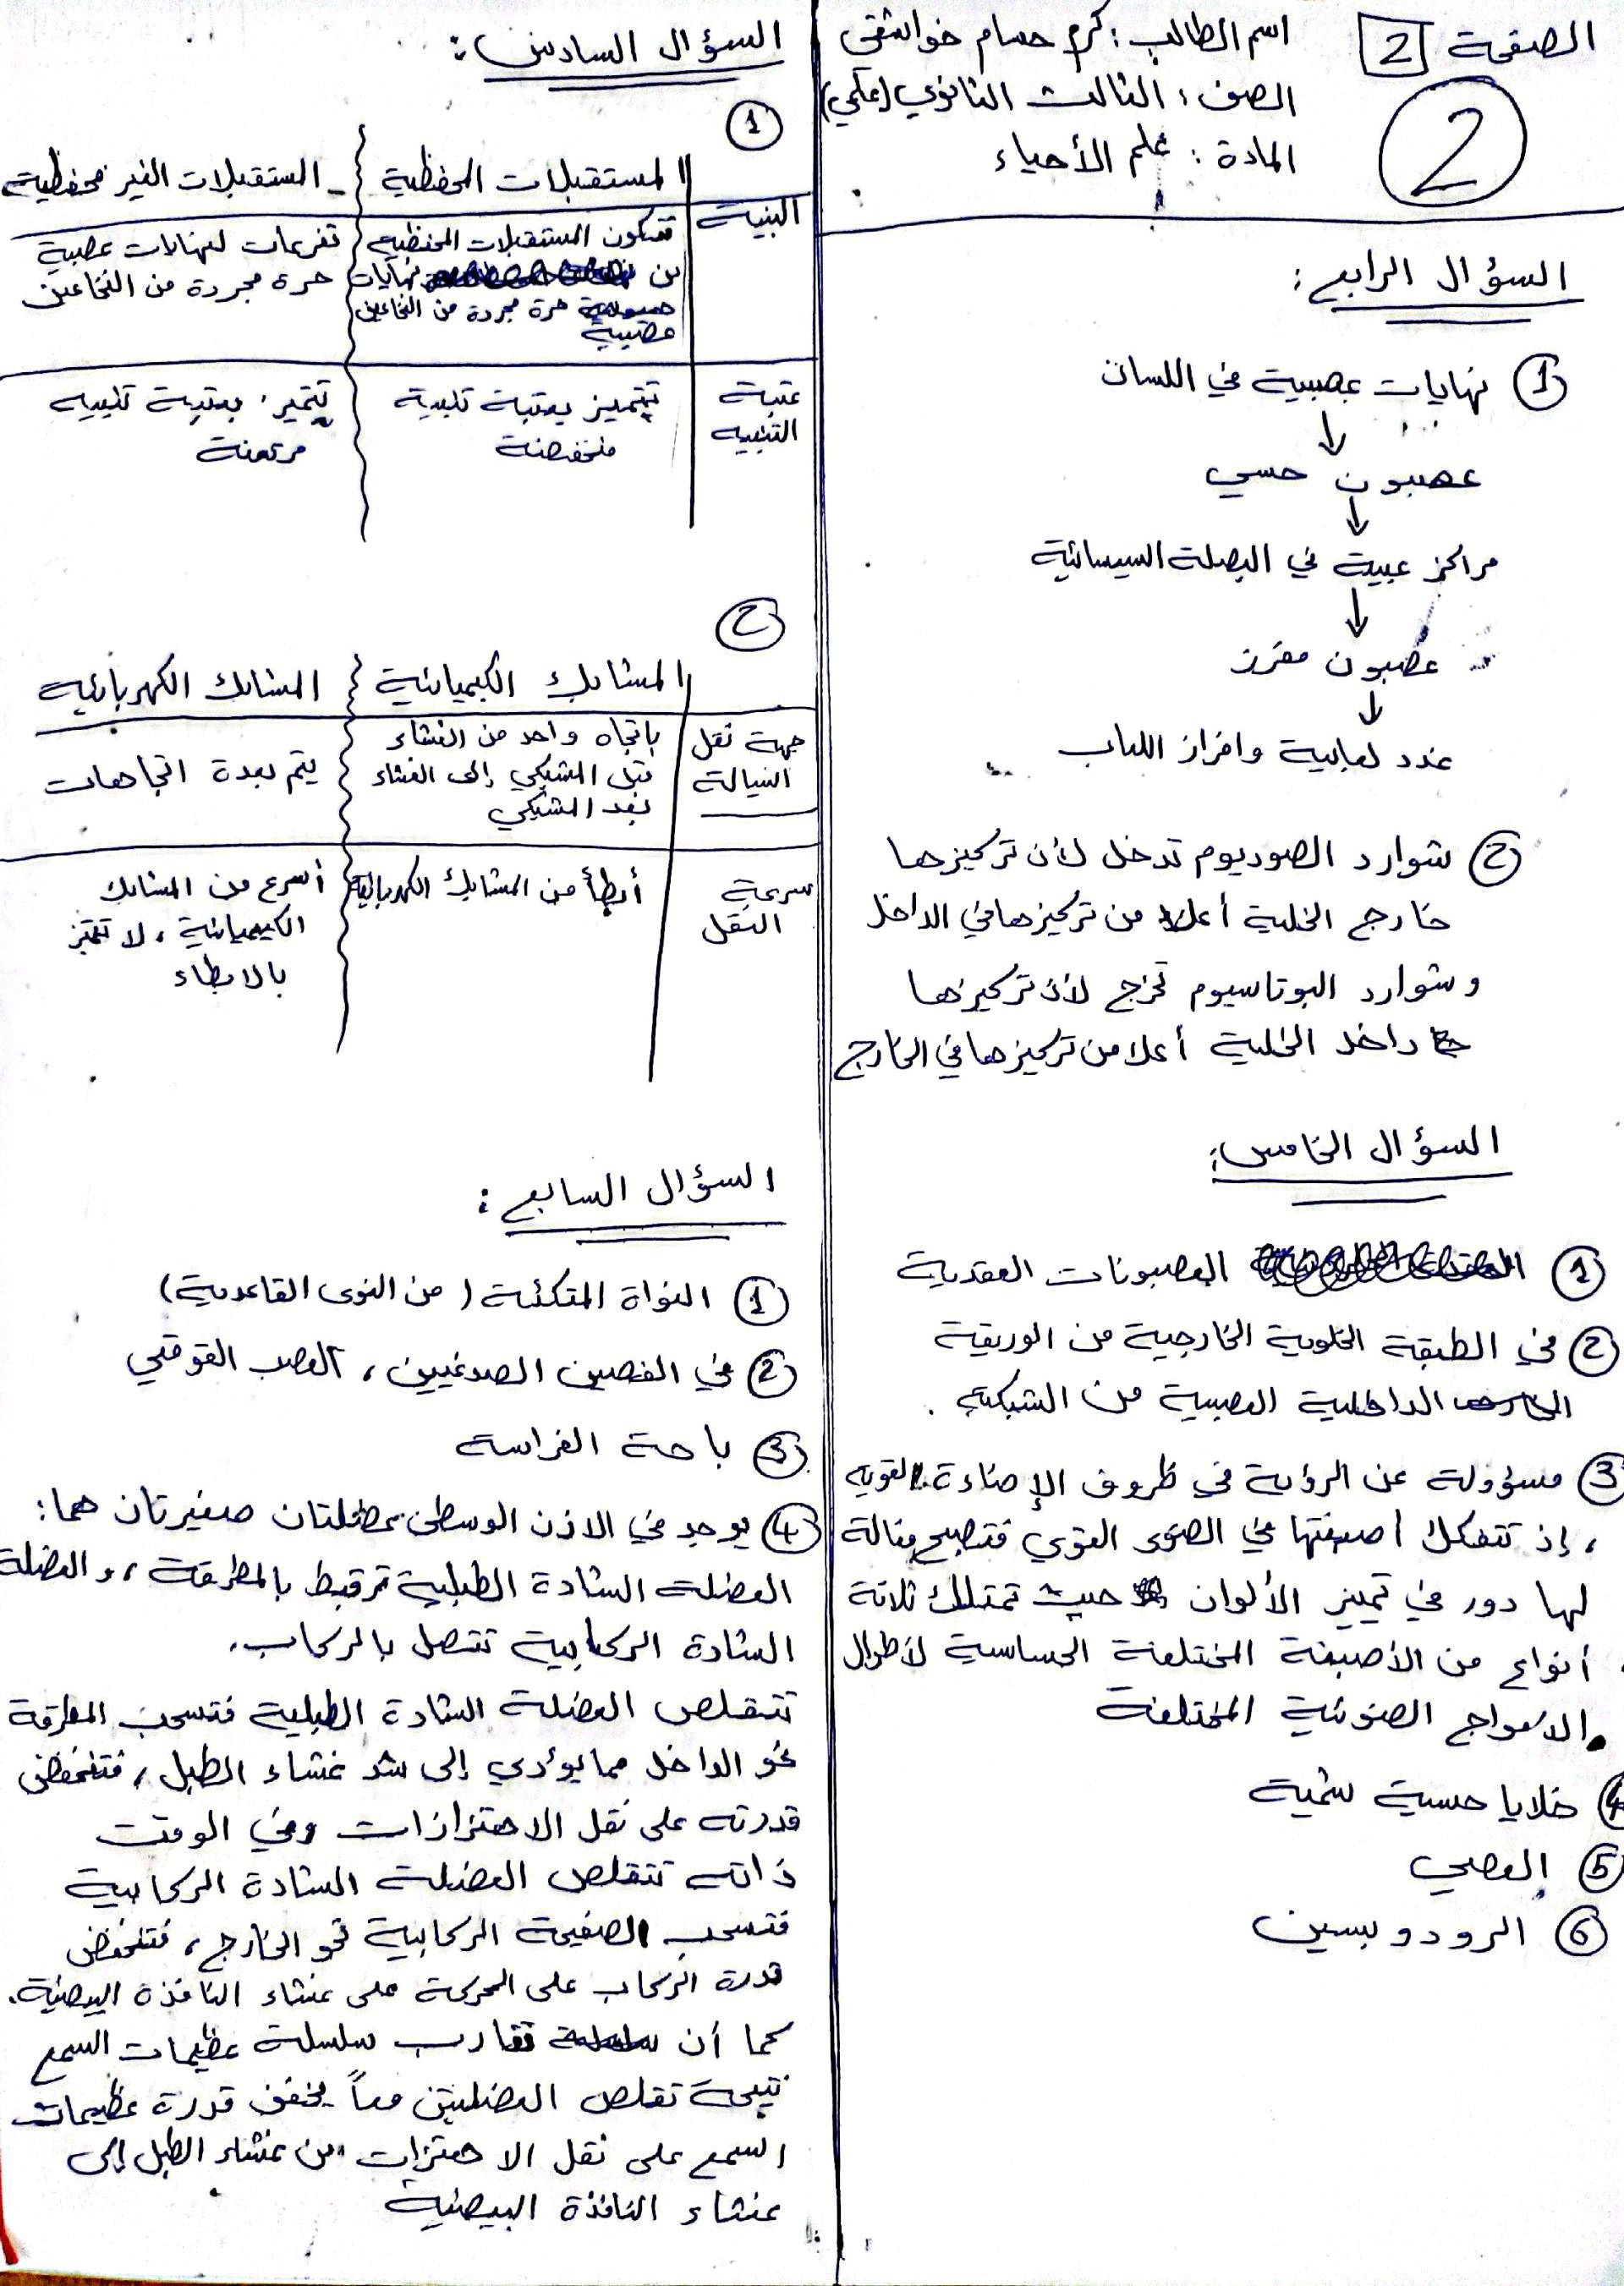 الصفحة 2
2
اسم الطالب: كرم حسام خواشقي
الصف: الثالث الثانوي (علمي)
المادة: علم الأحياء
السؤال الرابع:
1 نهايات عصبية في اللسان
↓
عصبون حسي
↓
مراكز عبية في البصلة السيسائية
↓
عصبون مفرز
↓
غدد لعابية وافراز اللعاب
2 شوارد الصوديوم تدخل لأن تركيزها
خارج الخلية أعلا من تركيزها في الداخل
وشوارد البوتاسيوم تخرج لأن تركيزها
داخل الخلية أعلا من تركيزها في الخارج
السؤال الخامس:
1 العصبونات العقدية
2 في الطبقة الخلوية الخارجية من الوريقة
الداخلية العصبية من الشبكية.
3 مسؤولة عن الرؤية في ظروف الإضاءة القوية
، إذ تتفكك أصبغتها في الضوء القوي فتصبح فعالة
لها دور في تمييز الألوان حيث تمتلك ثلاثة
أنواع من الأصبغة المختلفة الحساسية لأطوال
الامواج الضوئية المختلفة
4 خلايا حسية شمية
5 العصي
6 الرودوبسين
السؤال السادس:
1
المستقبلات المحفظية - المستقبلات الغير محفظية
البنية
تتكون المستقبلات المحفظية
من نهايات
حرة مجردة من النخاعين
عصبية
تفرعات لنهايات عصبية
حرة مجردة من النخاعين
عتبة
التنبيه
تتميز بعتبة تنبيه
منخفضة
تتميز بعتبة تنبيه
مرتفعة
2
المشابك الكيميائية المشابك الكهربائية
جهة نقل
السيالة
باتجاه واحد من الغشاء
قبل المشبكي إلى الغشاء
بعد المشبكي
يتم بعدة اتجاهات
سرعة
النقل
أبطأ من المشابك الكهربائية
أسرع من المشابك
الكيميائية، لا تتميز
بالابطاء
السؤال السابع:
1 النواة المتكئة (من النوى القاعدية)
2 في الفصين الصدغيين، العصب القوقعي
3 باحة الفراسة
4 يوجد في الاذن الوسطى عضلتان صغيرتان هما:
العضلة الشادة الطبلية ترتبط بالمطرقة، والعضلة
الشادة الركابية تتصل بالركاب.
تتقلص العضلة الشادة الطبلية فتسحب المطرقة
نحو الداخل مما يؤدي إلى شد غشاء الطبل، فتنخفض
قدرته على نقل الاهتزازات وفي الوقت
ذاته تتقلص العضلة الشادة الركابية
فتسحب الصفيحة الركابية نحو الخارج، فتنخفض
قدرة الركاب على الحركة على غشاء النافذة البيضية.
كما أن تقارب سلسلة عظيمات السمع
نتيجة تقلص العضليتن معاً يخفض قدرة عظيمات
السمع على نقل الاهتزات من غشاء الطبل إلى
غشاء النافذة البيضية